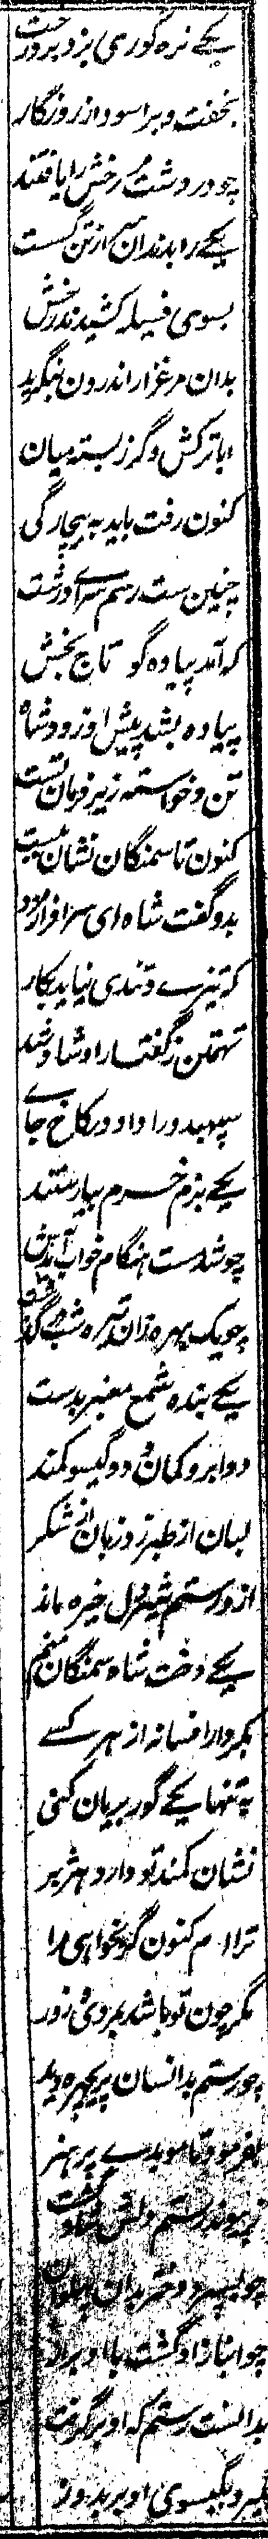 یکے نره گوری بزد بر درخت
بخفت و برآسود از روزگار
چو در دشت مر رخش را یافتند
یکے را بدندان سر از تن گسست
بسوی فسیله کشیدند رخش
بدان مرغزار اندرون بنگرید
ابا ترکش و گرز بسته میان
کنون رفت باید به بیچارگی
چنین ست رسم سراے درشت
که آمد پیاده گو تاج بخش
پیاده بشد پیش او زود شاه
تن و خواسته زیر فرمان تست
کنون تا سمنگان نشان نیست
بدو گفت شاه ای سرافراز مرد
که تیزے و تندی نیاید بکار
تهمتن ز گفتار او شاد شد
سپهبد ورا داد در کاخ جاے
یکے بزم خرم بیاراستند
چو شد مست هنگام خواب آمدش
چو یک بهره زان تیره شب در گذشت
یکے بنده شمع معنبر بدست
دو ابرو کمان و دو گیسو کمند
لبان از طبرزد زبان از شکر
ازو رستم شیردل خیره ماند
یکے دخت شاه سمنگان منم
بکردار افسانه از هر کسے
به تنها یکے گور بریان کنی
نشان کمند تو دارد هژبر
ترا ام کنون گر بخواهی مرا
مگر چون تو باشد بمردی و زور
چو رستم بدانسان پری چهره دید
بفرمود تا موبدے پر هنر
ز پیوند رستم دلش شاد گشت
چو بسپرد دختر بدان پهلوان
چو انباز او گشت با او براز
بدانست رستم که او برگرفت
بگیر و بگیسوی او بر بدوز